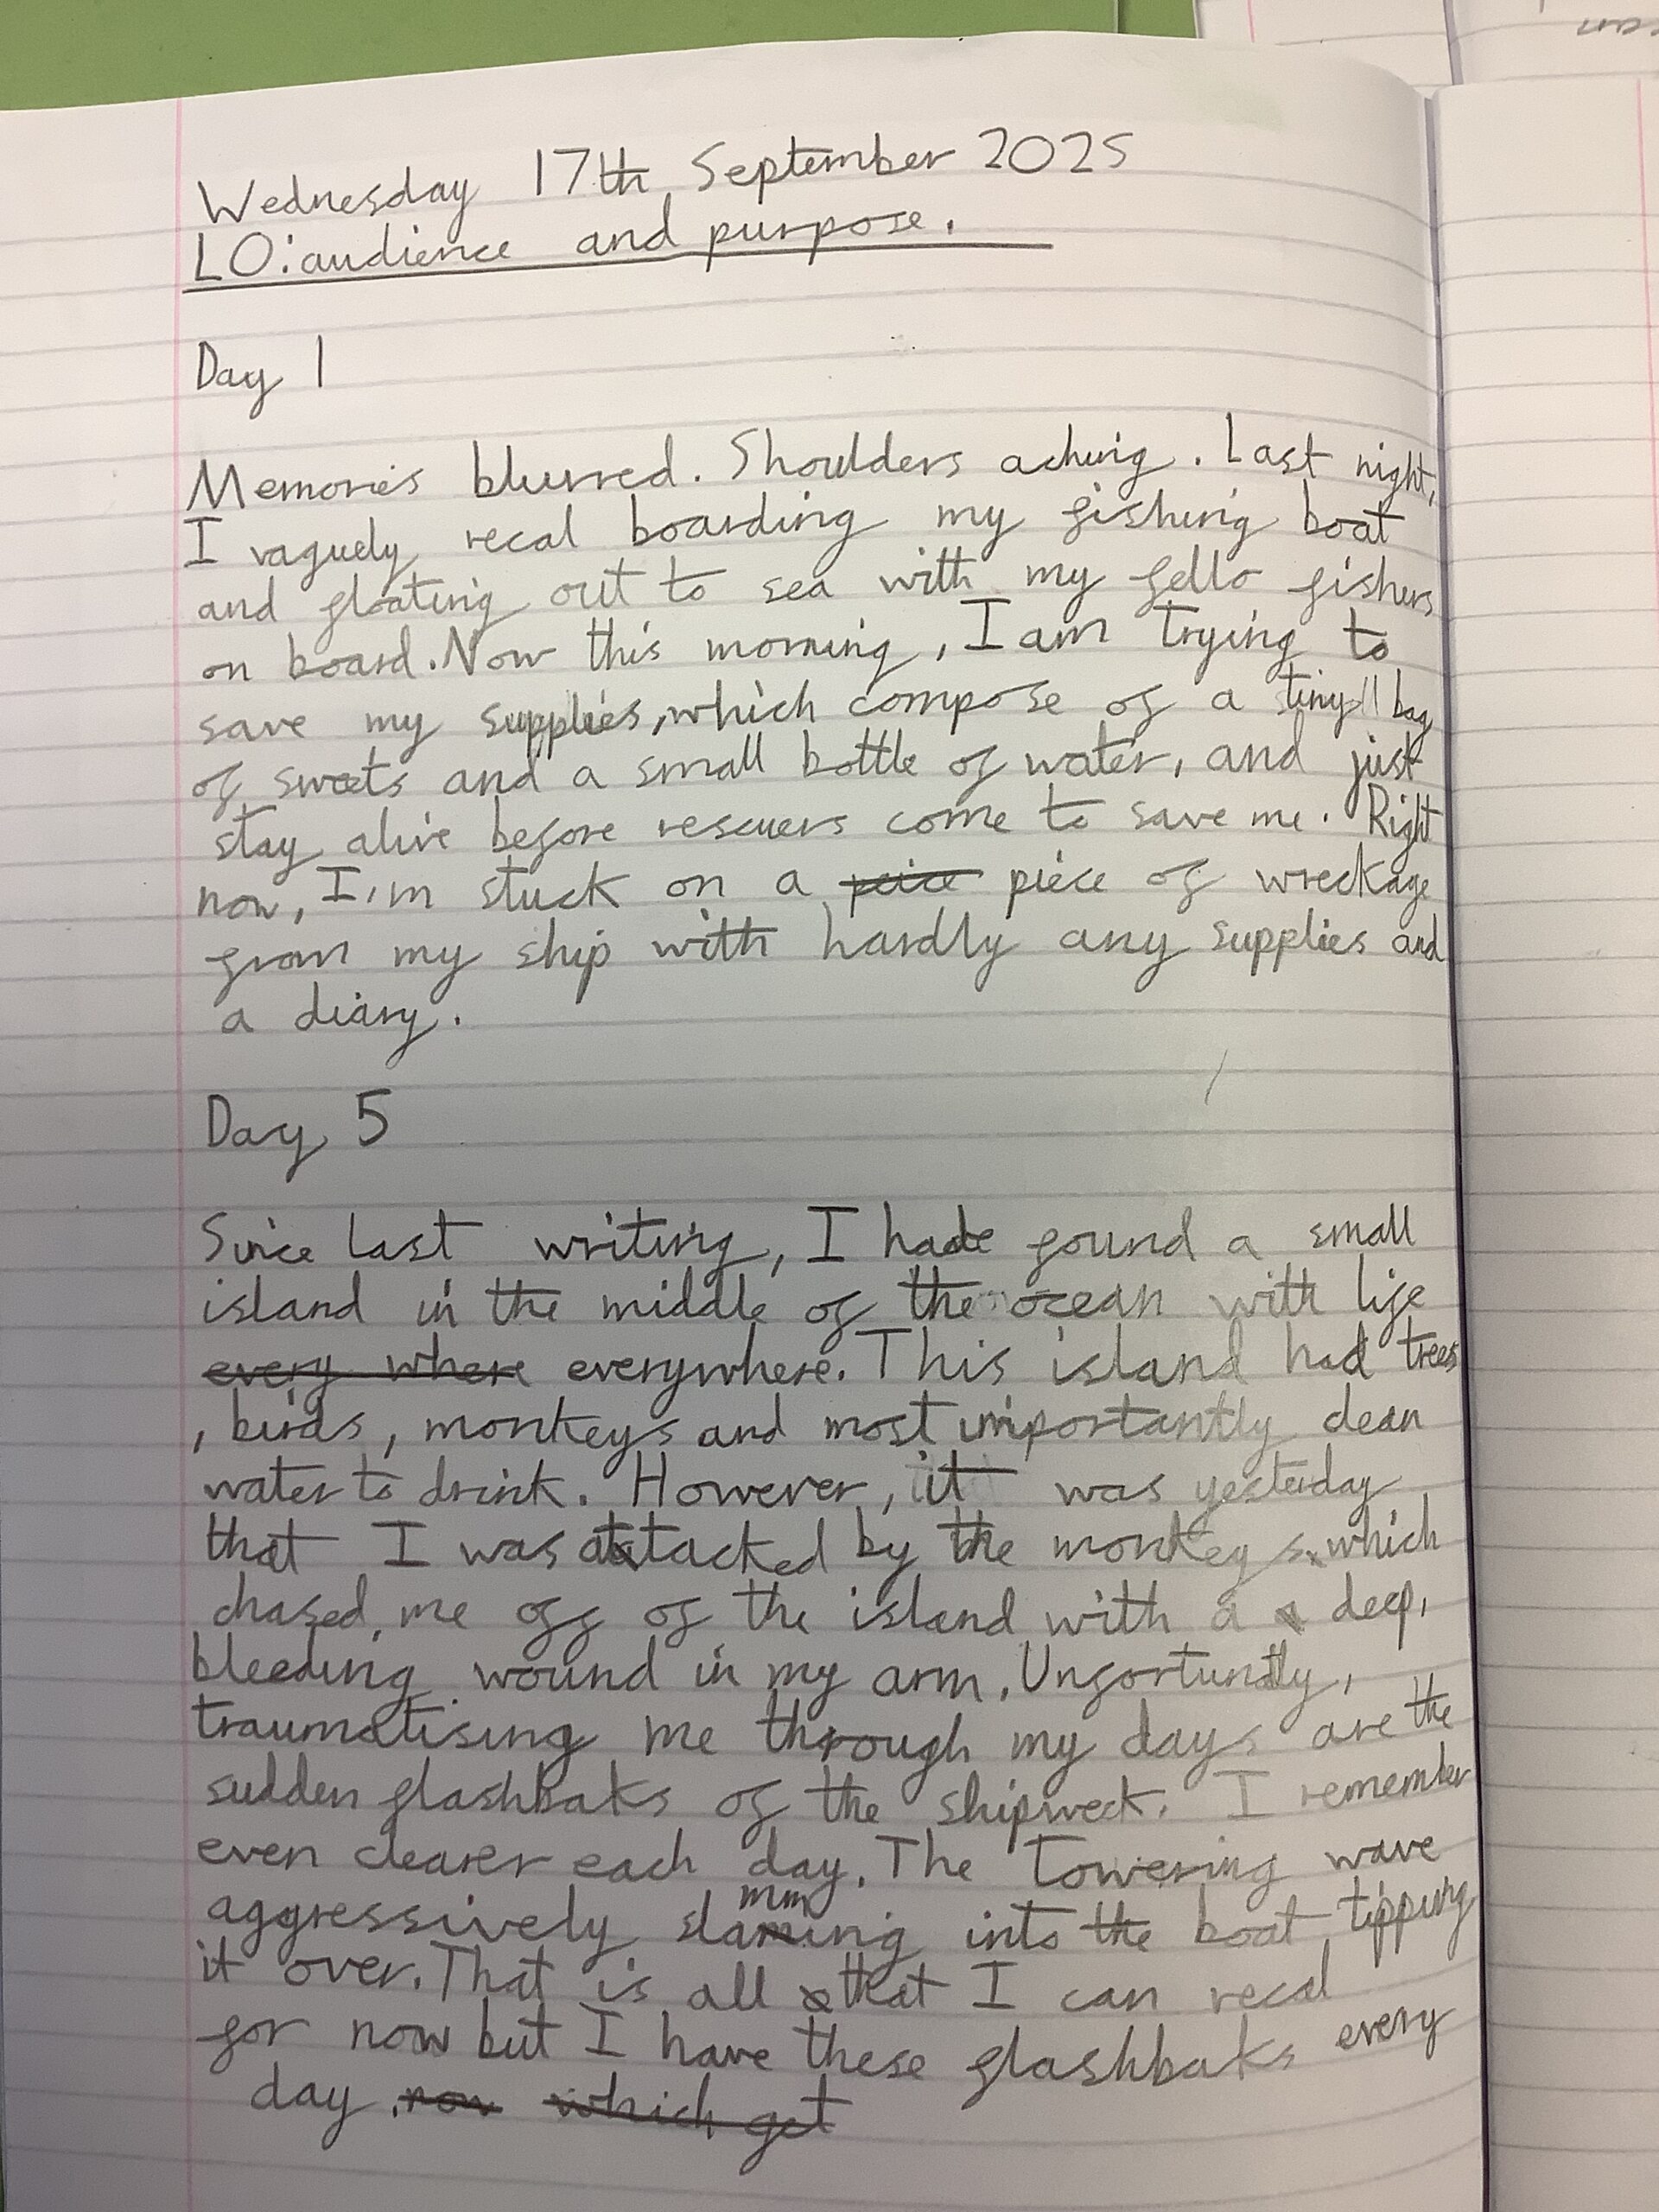 Wednesday 17th September 2025
LO: audience and purpose.
Day 1
Memories blurred. Shoulders aching. Last night,
I vaguely recal boarding my fishing boat
and floating out to sea with my fello fishers
on board. Now this morning, I am trying to
save my supplies, which compose of a tiny bag
of sweets and a small bottle of water, and just
stay alive before rescuers come to save me. Right
now, I'm stuck on a peice piece of wreckage
from my ship with hardly any supplies and
a diary.
Day 5
Since last writing, I had found a small
island in the middle of the ocean with life
every where everywhere. This island had trees
, birds, monkeys and most importantly clean
water to drink. However, it was yesterday
that I was attacked by the monkeys which
chased me off of the island with a deep,
bleeding wound in my arm. Unfortunatly,
traumatising me through my days are the
sudden flashbaks of the shipwreck. I remember
even clearer each day. The towering wave
aggressively slamming into the boat tipping
it over. That is all that I can recal
for now but I have these flashbaks every
day. now which get